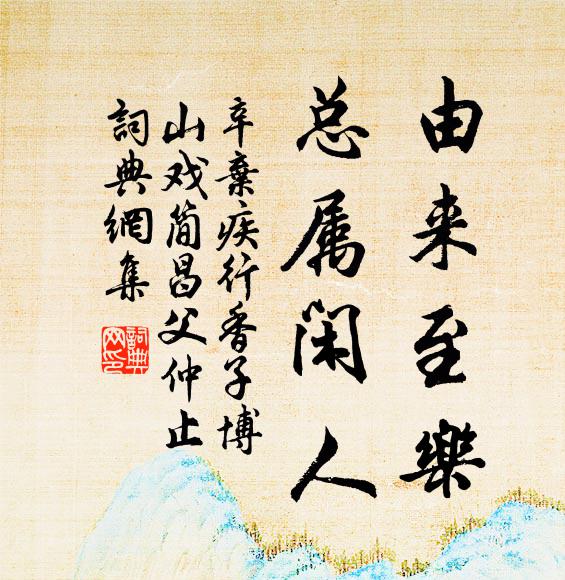 由来至樂
总属闲人
辛棄疾行香子博
山戏简昌父仲止
詞典網集
詞典
网印